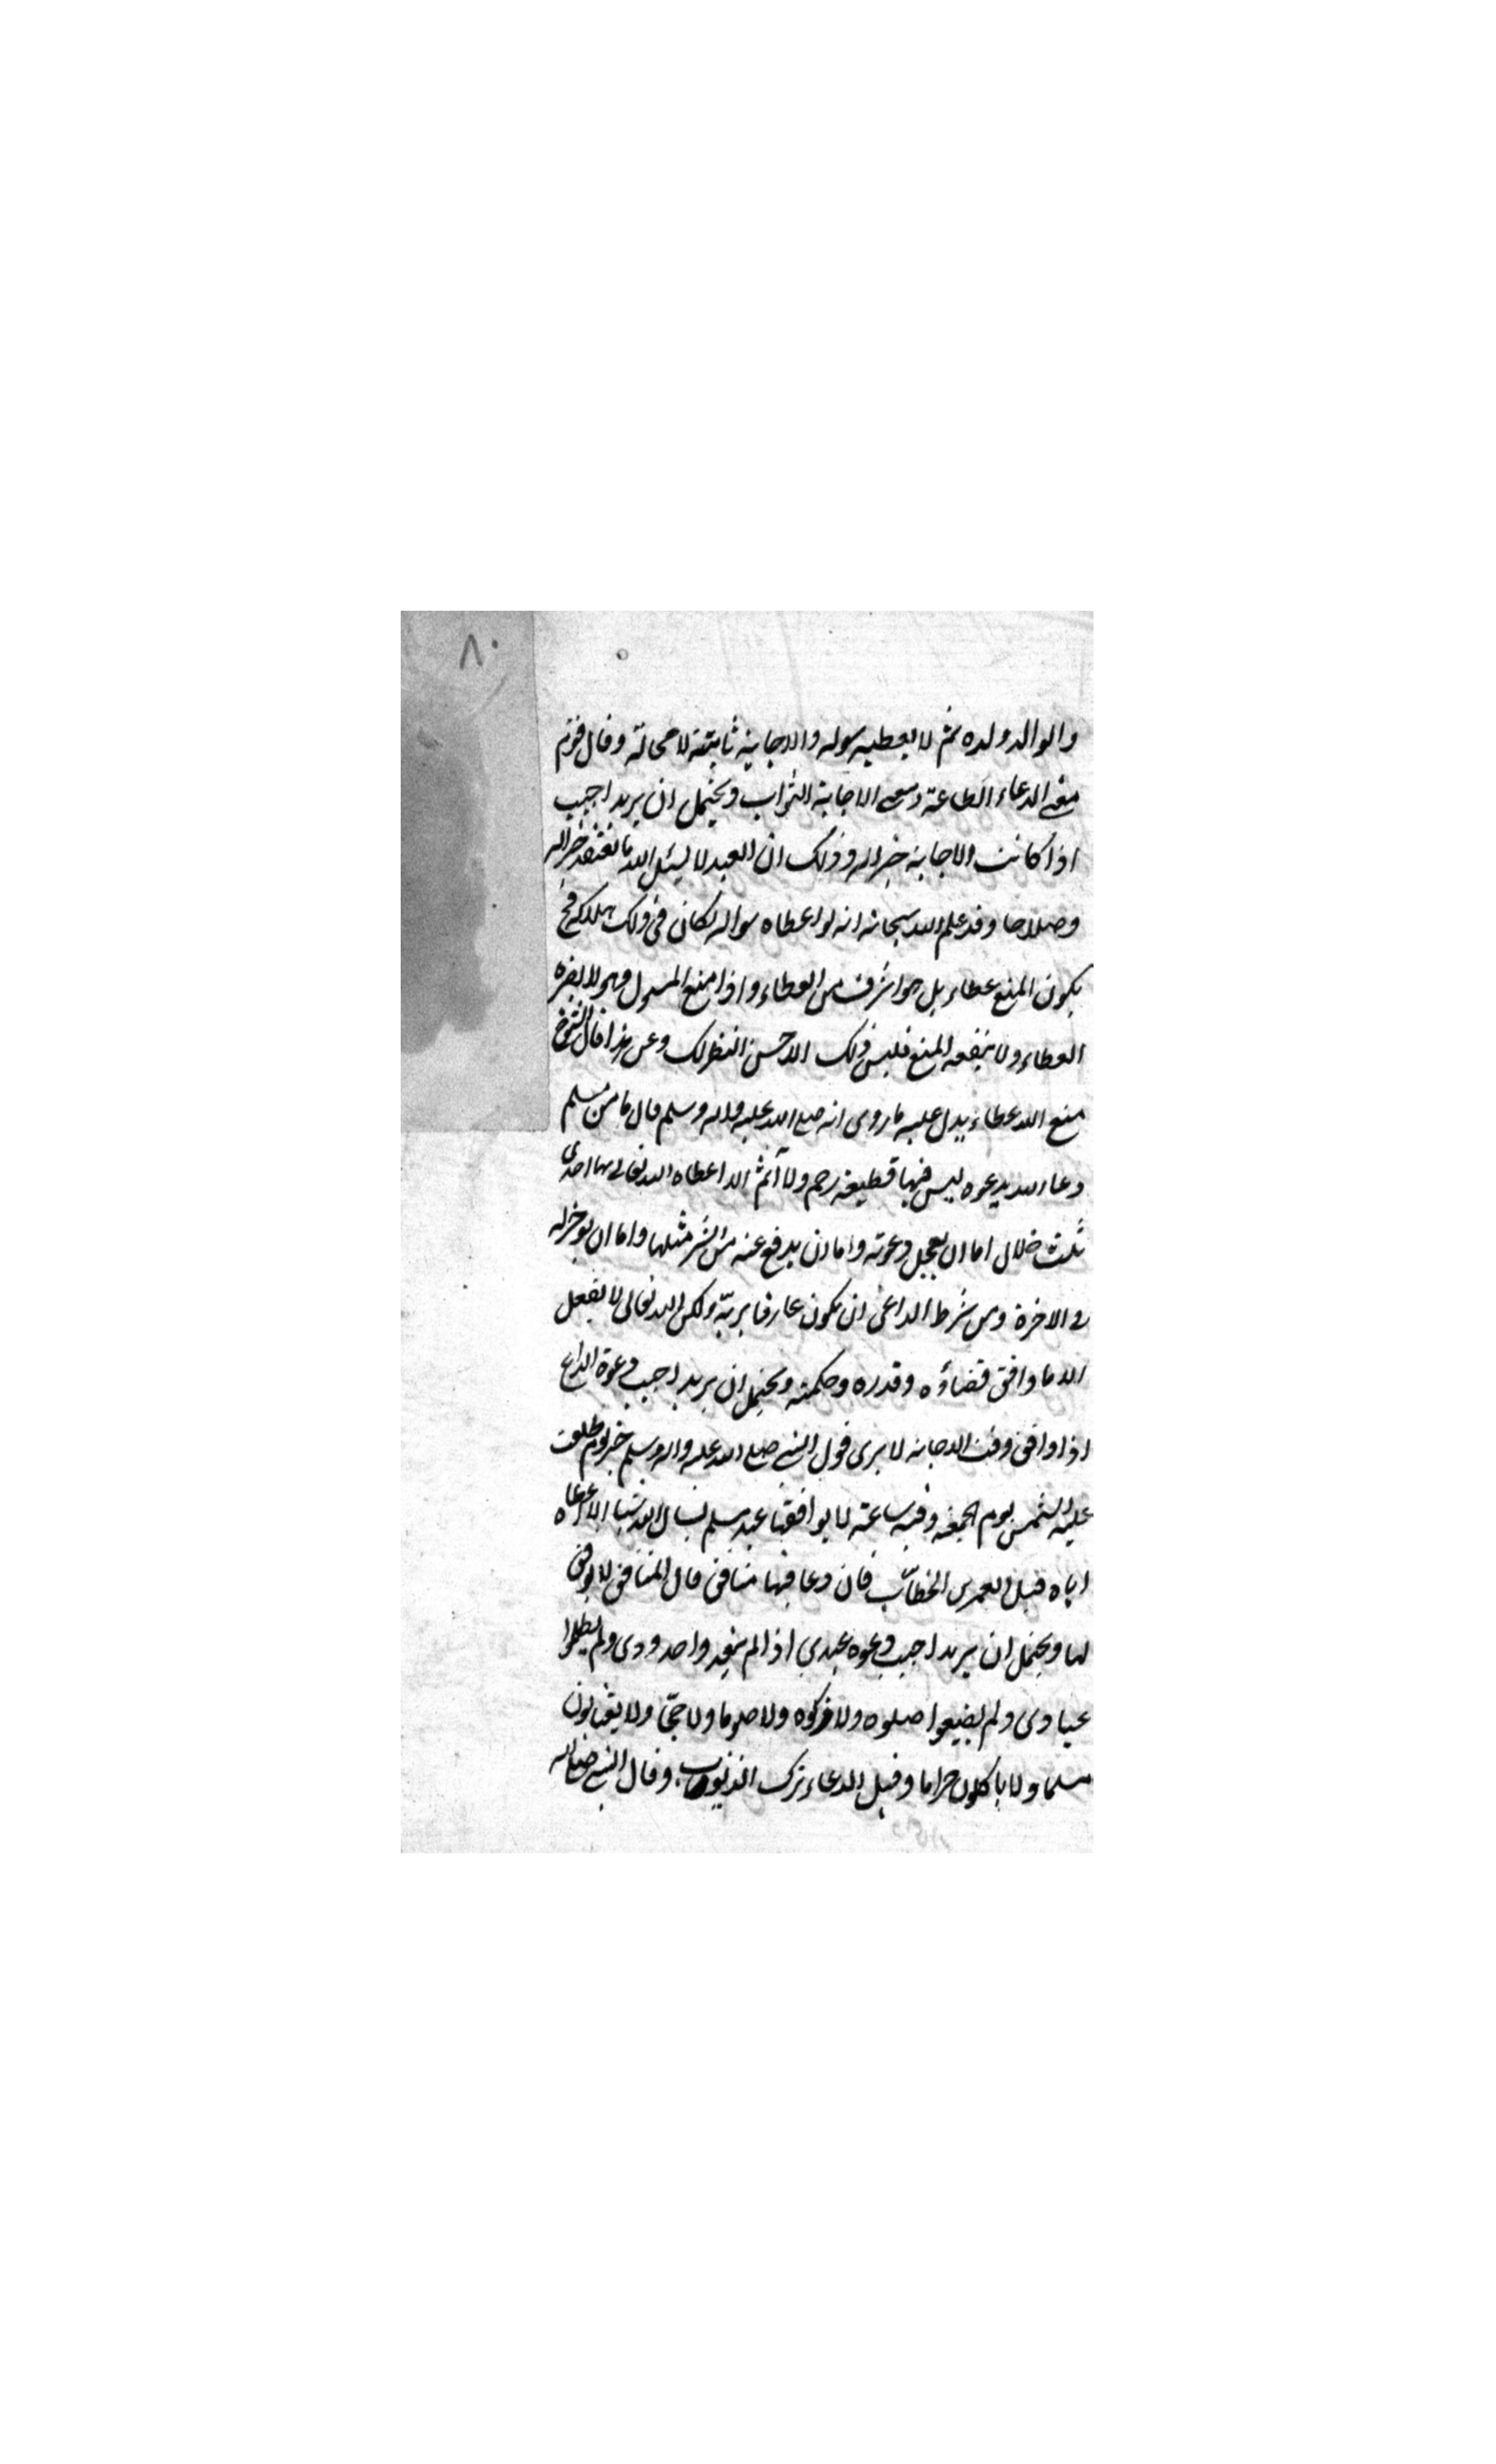 ٨٠
والوالد ولده ثم لا يعطيه سوله والاجابة ثابتة لا محالة وقال قوم
معنى الدعاء الطاعة ومعنى الاجابة الثواب ويحتمل ان يريد اجيب
اذا كانت الاجابة خيرا له وذلك ان العبد لا يسئل الله ما يعتقد خيرا له
وصلاحا وقد علم الله سبحانه انه لو اعطاه سواله لكان في ذلك هلاكه فح
يكون المنع عطاء بل هو اشرف من العطاء واذا منع المسول وهو لا يضره
العطاء ولا ينفعه المنع فليس ذلك الا حسن النظر لك وعن هذا قال الشيوخ
منع الله عطاء يدل عليه ما روى انه صلى الله عليه واله وسلم قال ما من مسلم
دعا الله بدعوه ليس فيها قطيعة رحم ولا اثم الا اعطاه الله تعالى بها احدى
ثلث خلال اما ان يعجل دعوته واما ان يدفع عنه من الشر مثلها واما ان يوخر له
في الاخرة ومن شرط الداعى ان يكون عارفا بربه ولكن الله تعالى لا يفعل
الا ما وافق قضاؤه وقدره وحكمته ويحتمل ان يريد اجيب دعوة الداع
اذا وافق وقت الاجابة لا يرى قول النبي صلى الله عليه واله وسلم خير يوم طلعت
عليه الشمس يوم الجمعة وفيه ساعة لا يوافقها عبد مسلم يسال الله شيا الا اعطاه
اياه قيل لعمر بن الخطاب فان دعا فيها منافق قال المنافق لا يوفق
لها ويحتمل ان يريد اجيب دعوه عبدي اذا لم يتعد واحدودى ولم يظلموا
عبادى ولم يضيعوا صلوه ولا زكوه ولا صوما ولا حجا ولا يغتابون
مسلما ولا ياكلون حراما وقيل الدعاء ترك الذنوب وقال النبي صلى الله